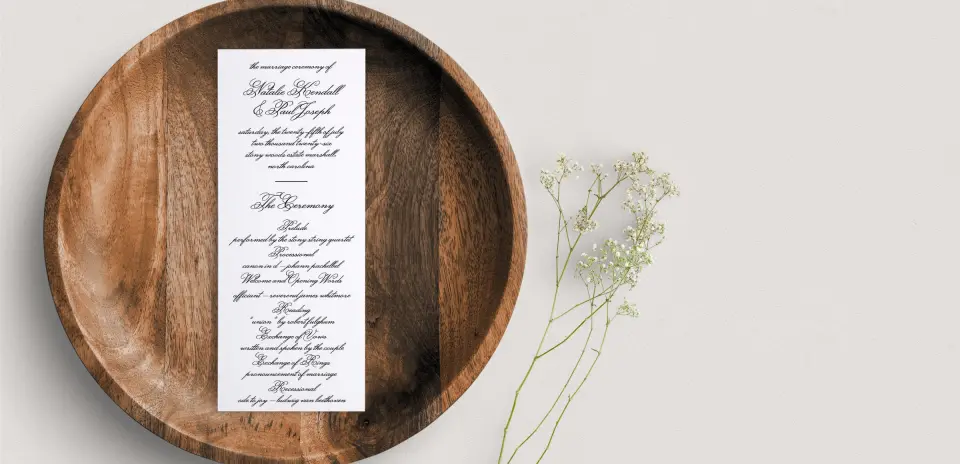 the marriage ceremony of
Natalie Kendall
& Paul Joseph
saturday, the twenty-fifth of july
two thousand twenty-six
stony woods estate marshall,
north carolina
The Ceremony
Prelude
performed by the stony string quartet
Processional
canon in d – johann pachelbel
Welcome and Opening Words
officiant – reverend james whitmore
Reading
"union" by robert fulghum
Exchange of Vows
written and spoken by the couple
Exchange of Rings
pronouncement of marriage
Recessional
ode to joy – ludwig van beethoven